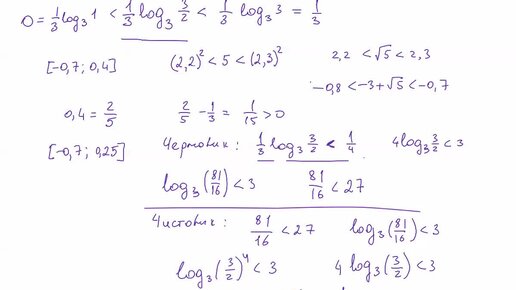 0 = 1/3 log₃ 1 < 1/3 log₃ 3/2 < 1/3 log₃ 3 = 1/3
[-0,7; 0,4] (2,2)² < 5 < (2,3)² 2,2 < √5 < 2,3
-0,8 < -3+√5 < -0,7
0,4 = 2/5 2/5 - 1/3 = 1/15 > 0
[-0,7; 0,25] Черновик: 1/3 log₃ 3/2 < 1/4 4 log₃ 3/2 < 3
log₃ (81/16) < 3 81/16 < 27
Чистовик: 81/16 < 27 log₃ (81/16) < 3
log₃ (3/2)⁴ < 3 4 log₃ (3/2) < 3